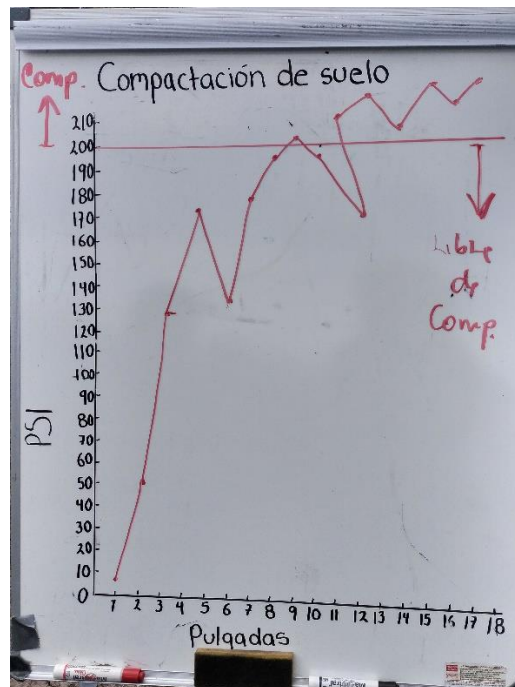 Comp. Compactación de suelo
210
200
190
180
170
160
150
140
130
120
110
100
90
80
70
60
50
40
30
20
10
0
PSI
1 2 3 4 5 6 7 8 9 10 11 12 13 14 15 16 17 18
Pulgadas
Libre
de
Comp.